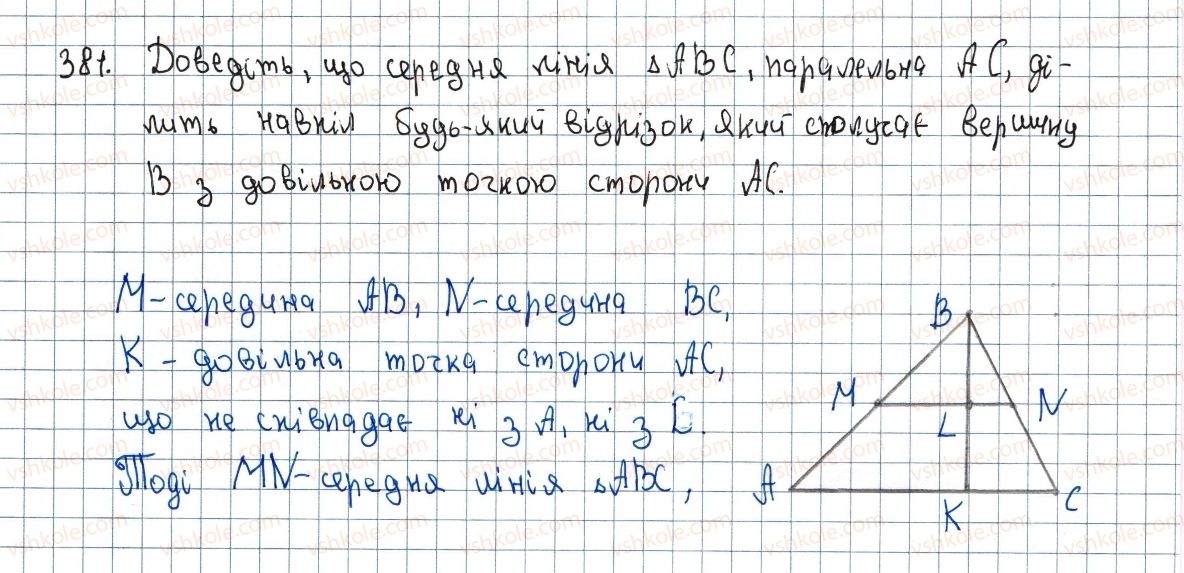 381. Доведіть, що середня лінія ΔABC, паралельна AC, ді-
лить навпіл будь-який відрізок, який сполучає вершину
B з довільною точкою сторони AC.
M-середина AB, N-середина BC,
K - довільна точка сторони AC,
що не співпадає ні з A, ні з C.
Тоді MN-середня лінія ΔABC,
B
M
L
N
A
K
C
vshkole.com